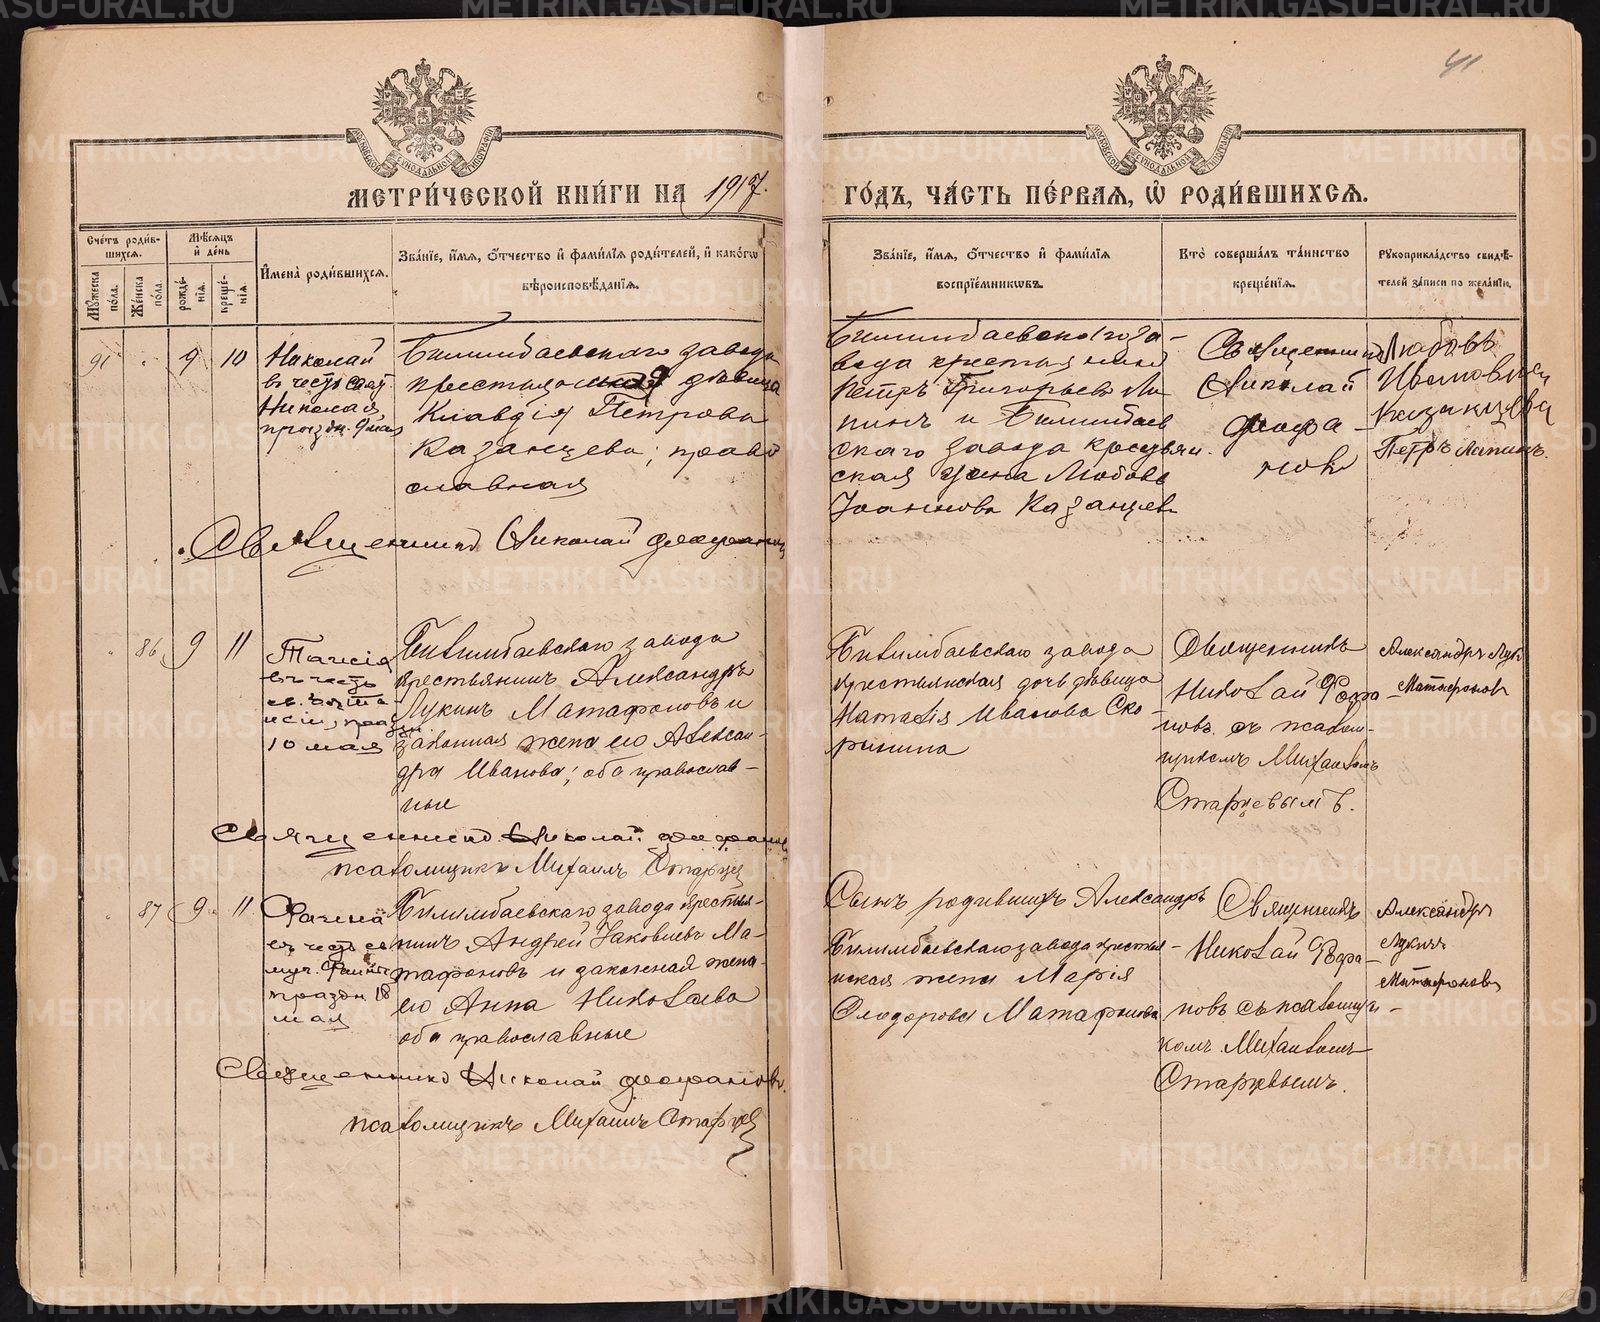 41
МОСКОВСКОЙ СУНОДАЛЬНОЙ ТИПОГРАФІИ
МОСКОВСКОЙ СУНОДАЛЬНОЙ ТИПОГРАФІИ
МЕТРИ́ЧЕСКОЙ КНИ́ГИ НА 1917.
ГО́ДЪ, ЧА́СТЬ ПЕ́РВАЯ, Ѡ҆ РОДИ́ВШИХСЯ.
Сче́тъ роди́в-
шихся.
Мѣ́сяцъ
и҆ де́нь
Мꙋ́жеска
по́ла.
Же́нска
по́ла.
рожде́-
нїѧ.
креще́-
нїѧ.
И҆мена̀ роди́вшихся.
Зва́нїе, и҆́мя, ѻ҆́тчество и҆ фами́лїя роди́телей, и҆ како́гѡ
вѣроисповѣ́данїѧ.
Зва́нїе, и҆́мя, ѻ҆́тчество и҆ фами́лїя
воспрїе́мникѡвъ.
Кто̀ соверша́лъ та́инство
креще́нїѧ.
Рꙋкоприкла́дство свидѣ́-
телей за́писи по жела́нїю.
91 9 10
Николай
въ честь свят.
Николая,
праздн. 9 мая
Билимбаевскаго завода
крестьянская дѣвица
Клавдія Петрова
Казанцева; право
славная
Билимбаевскаго за-
вода крестьянинъ
Петръ Григорьевъ Ла
пинъ и Билимбаев
скаго завода крестьян
ская жена Любовь
Іоаннова Казанцева
Священникъ
Николай
Феофа-
новъ
Любовь
Ивановна
Казанцева
Петръ Лапинъ.
Священникъ Николай Феофановъ
86 9 11
Таисія
въ честь
св. Таи
сіи, празд
10 мая
Билимбаевскаго завода
крестьянинъ Александръ
Лукинъ Матафоновъ и
законная жена его Алексан-
дра Иванова; оба православ-
ные
Билимбаевскаго завода
крестьянская дочь дѣвица
Наталія Иванова Ско-
рынина
Священникъ
Николай Феофа
новъ съ псалом-
щикомъ Михаиломъ
Старцевымъ.
Александръ Лукъ
Матафоновъ
Священникъ Николай Феофановъ
псаломщикъ Михаилъ Старцев
87 9 11
Фаина
въ честь св
муч. Фаины
праздн 18
мая
Билимбаевскаго завода крестья-
нинъ Андрей Іаковлевъ Ма-
тафоновъ и законная жена
его Анна Николаева
оба православные
Сынъ родившихъ Александръ
Билимбаевскаго завода крестья-
нская жена Марія
Ѳеодорова Матафонова
Священникъ
Николай Феофа-
новъ съ псаломщи-
комъ Михаиломъ
Старцевымъ.
Александръ
Лукинъ
Матафоновъ
Священникъ Николай Феофановъ.
псаломщикъ Михаилъ Старцев
METRIKI.GASO-URAL.RU